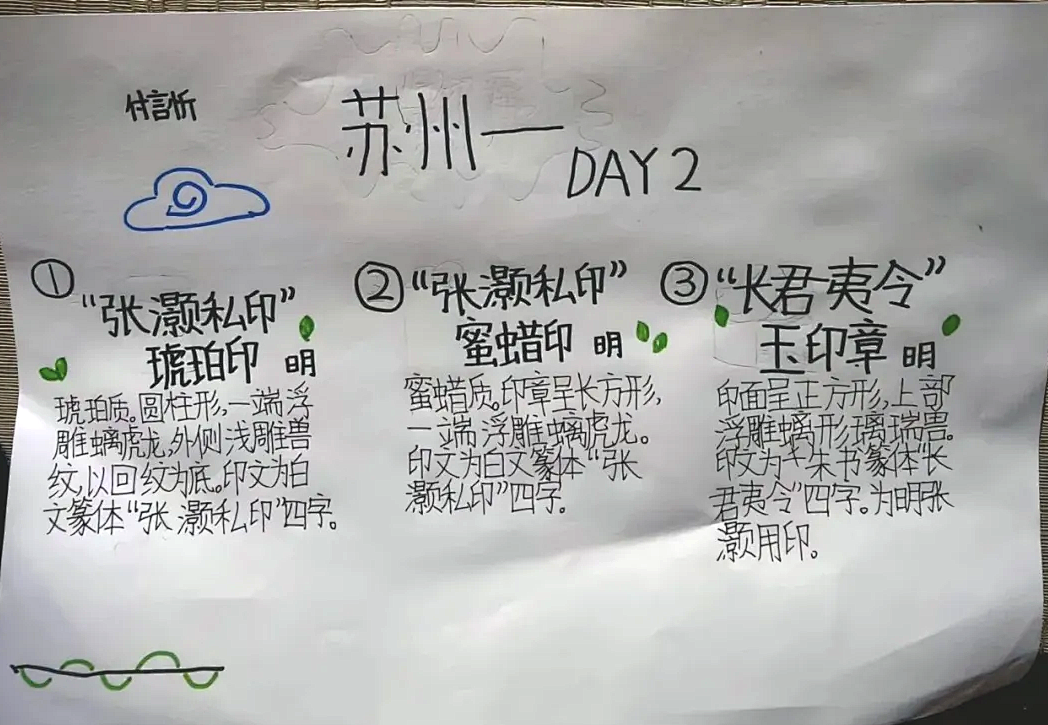 付言忻
苏州一
DAY 2
① “张灏私印”
琥珀印 明
琥珀质。圆柱形,一端浮
雕螭虎龙,外侧浅雕兽
纹,以回纹为底。印文为白
文篆体“张灏私印”四字。
② “张灏私印”
蜜蜡印 明
蜜蜡质。印章呈长方形,
一端浮雕螭虎龙。
印文为白文篆体“张
灏私印”四字。
③ “长君夷令”
玉印章 明
印面呈正方形,上部
浮雕螭形璃瑞兽。
印文为朱书篆体“长
君夷令”四字。为明张
灏用印。